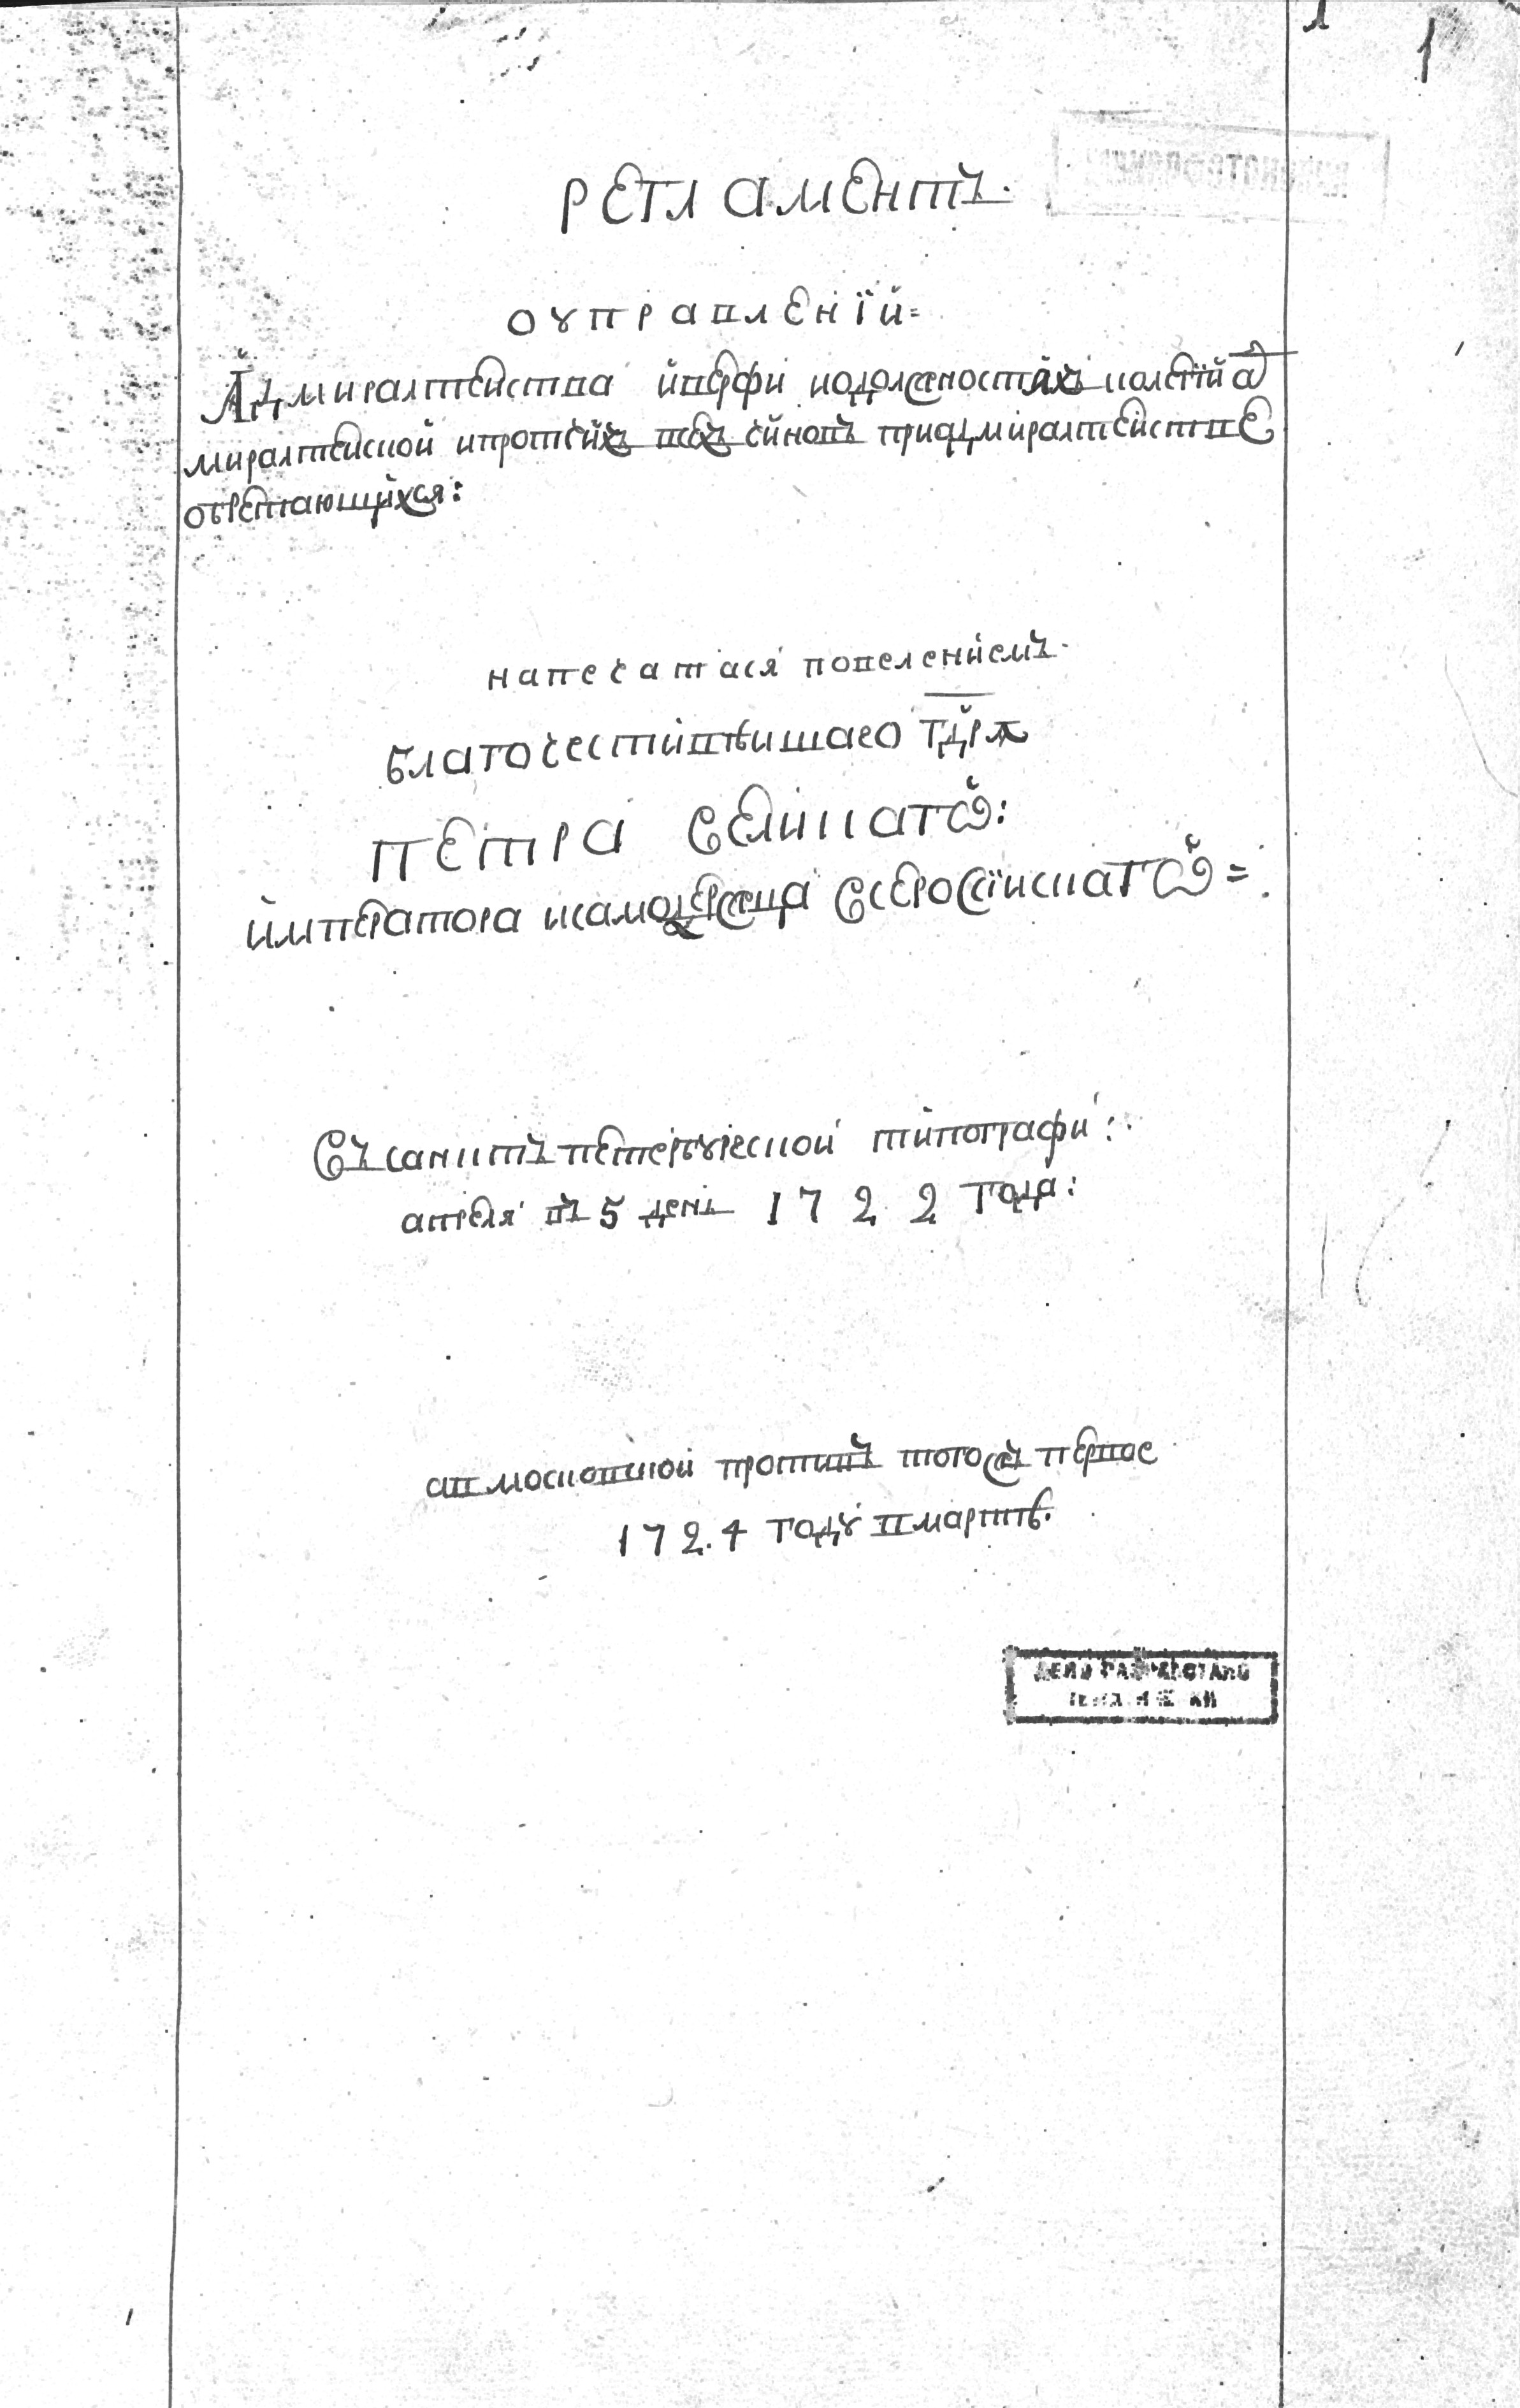 1
РЕГЛАМЕНТЪ.
О УПРАВЛЕНІЙ=
Адмиралтейства йверфи йодолжностяхъ колегій а҆д
миралтейской ипротчихъ всехъ чйновъ приадмиралтействе
обретающихся:
напечатася повелениемъ.
благочестивѣишаго гдря
ПЕТРА Великагѡ:
императора исамодержца Всеросийскагѡ=
Въ санктъпетербургскои типографи:
апреля въ 5 день 1722 года:
авмосковскои противъ тогожъ первое
1724 году вмартѣ.